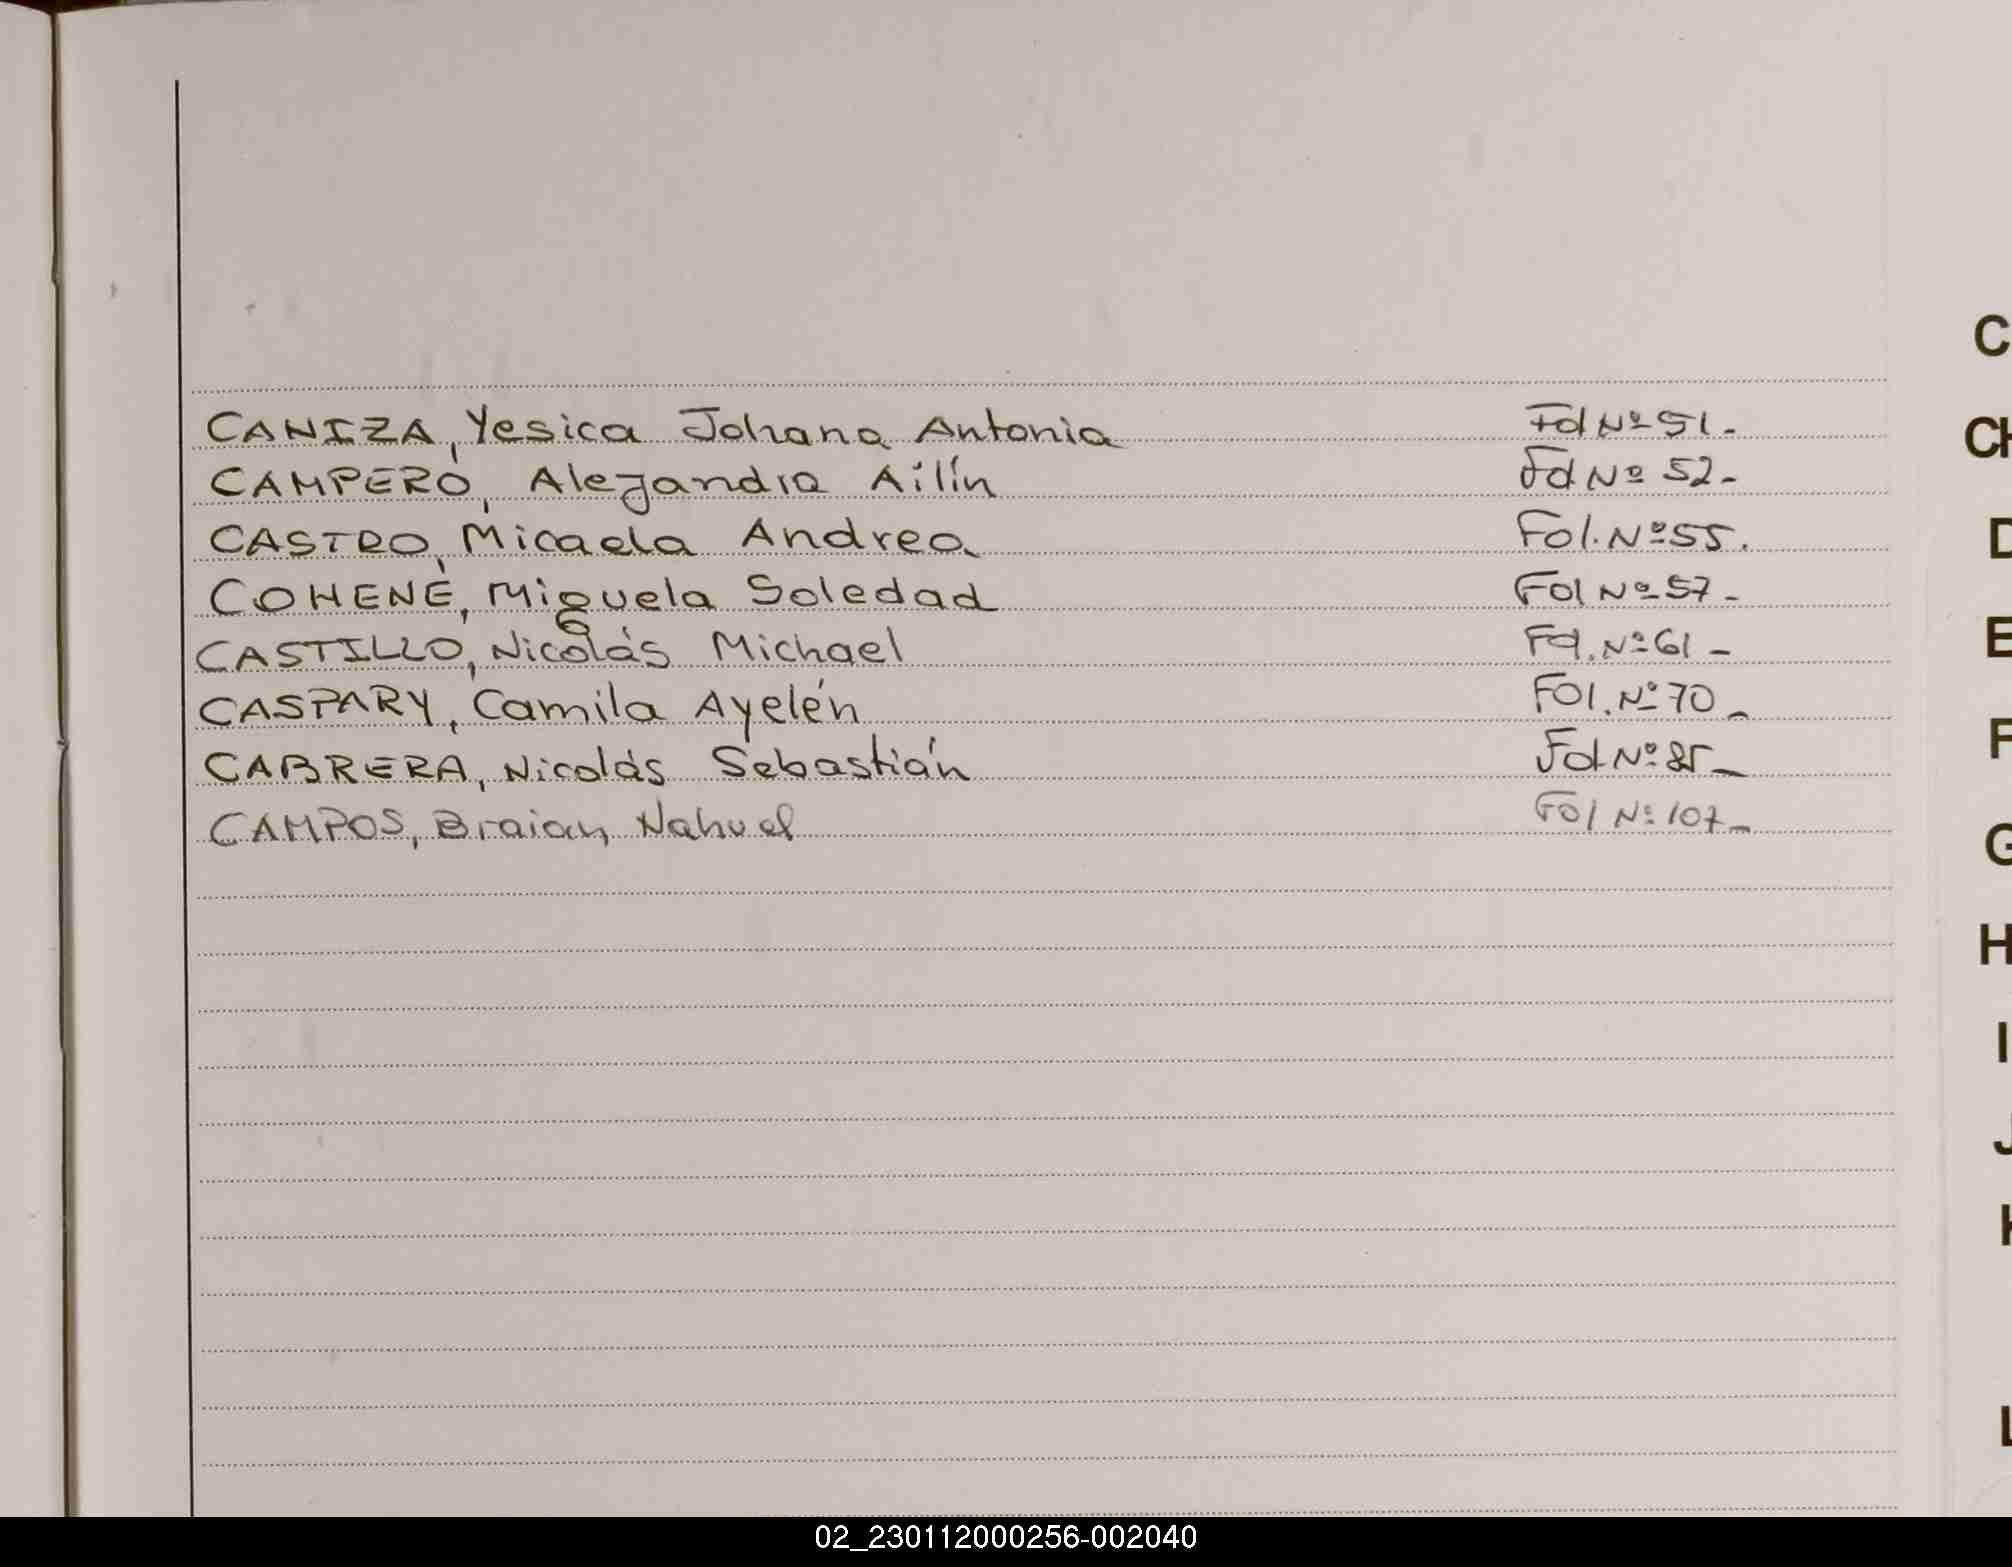 CANIZA, Yesica Johana Antonia Fol Nº 51-
CAMPERO, Alejandra Ailín Fol Nº 52-
CASTRO, Micaela Andrea Fol. Nº 55.
COHENÉ, Miguela Soledad Fol Nº 57-
CASTILLO, Nicolás Michael Fol. Nº 61-
CASPARY, Camila Ayelén Fol. Nº 70-
CABRERA, Nicolás Sebastián Fol Nº 85-
CAMPOS, Braian Nahuel Fol Nº 107-
C
CH
D
E
F
G
H
I
J
K
L
02_230112000256-002040